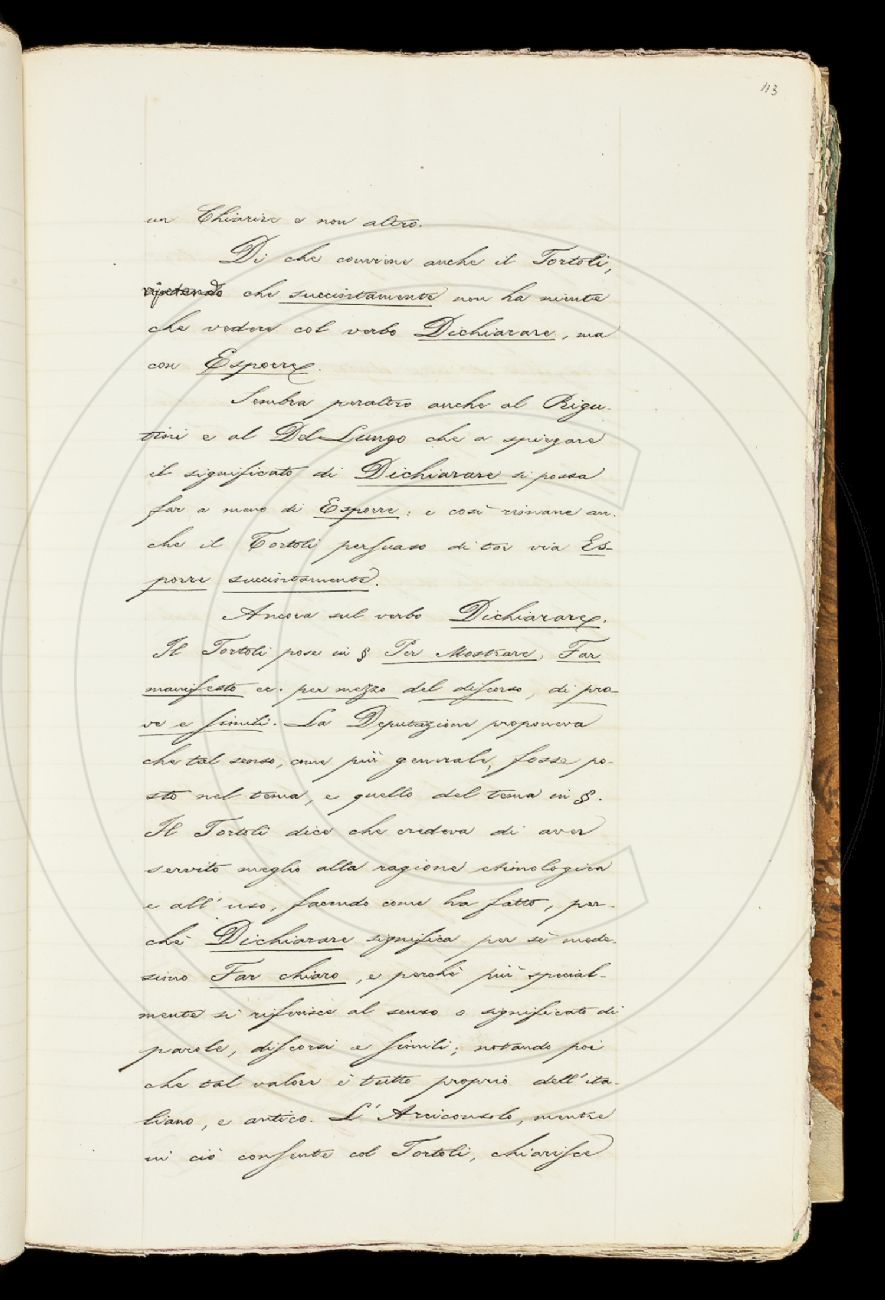 113
un Chiarire e non altro.
Di che conviene anche il Tortoli,
ripetendo che succintamente non ha niente
che vedere col verbo Dichiarare, ma
con Esporre.
Sembra peraltro anche al Rigu-
tini e al Del Lungo che a spiegare
il significato di Dichiarare si possa
far a meno di Esporre: e così rimane an-
che il Tortoli persuaso di tor via Es-
porre succintamente.
Ancora sul verbo Dichiarare.
Il Tortoli pose in § Per Mostrare, Far
manifesto ec. per mezzo del discorso, di pro-
ve e simili. La Deputazione proponeva
che tal senso, come più generale, fosse po-
sto nel tema, e quello del tema in §.
Il Tortoli dice che credeva di aver
servito meglio alla ragione etimologica
e all'uso, facendo come ha fatto, per-
chè Dichiarare significa per sè mede-
simo Far chiaro, e perchè più special-
mente si riferisce al senso o significato di
parole, discorsi e simili; notando poi
che tal valore è tutto proprio dell'ita-
liano, e antico. L'Arciconsolo, mentre
in ciò consente col Tortoli, chiarisce